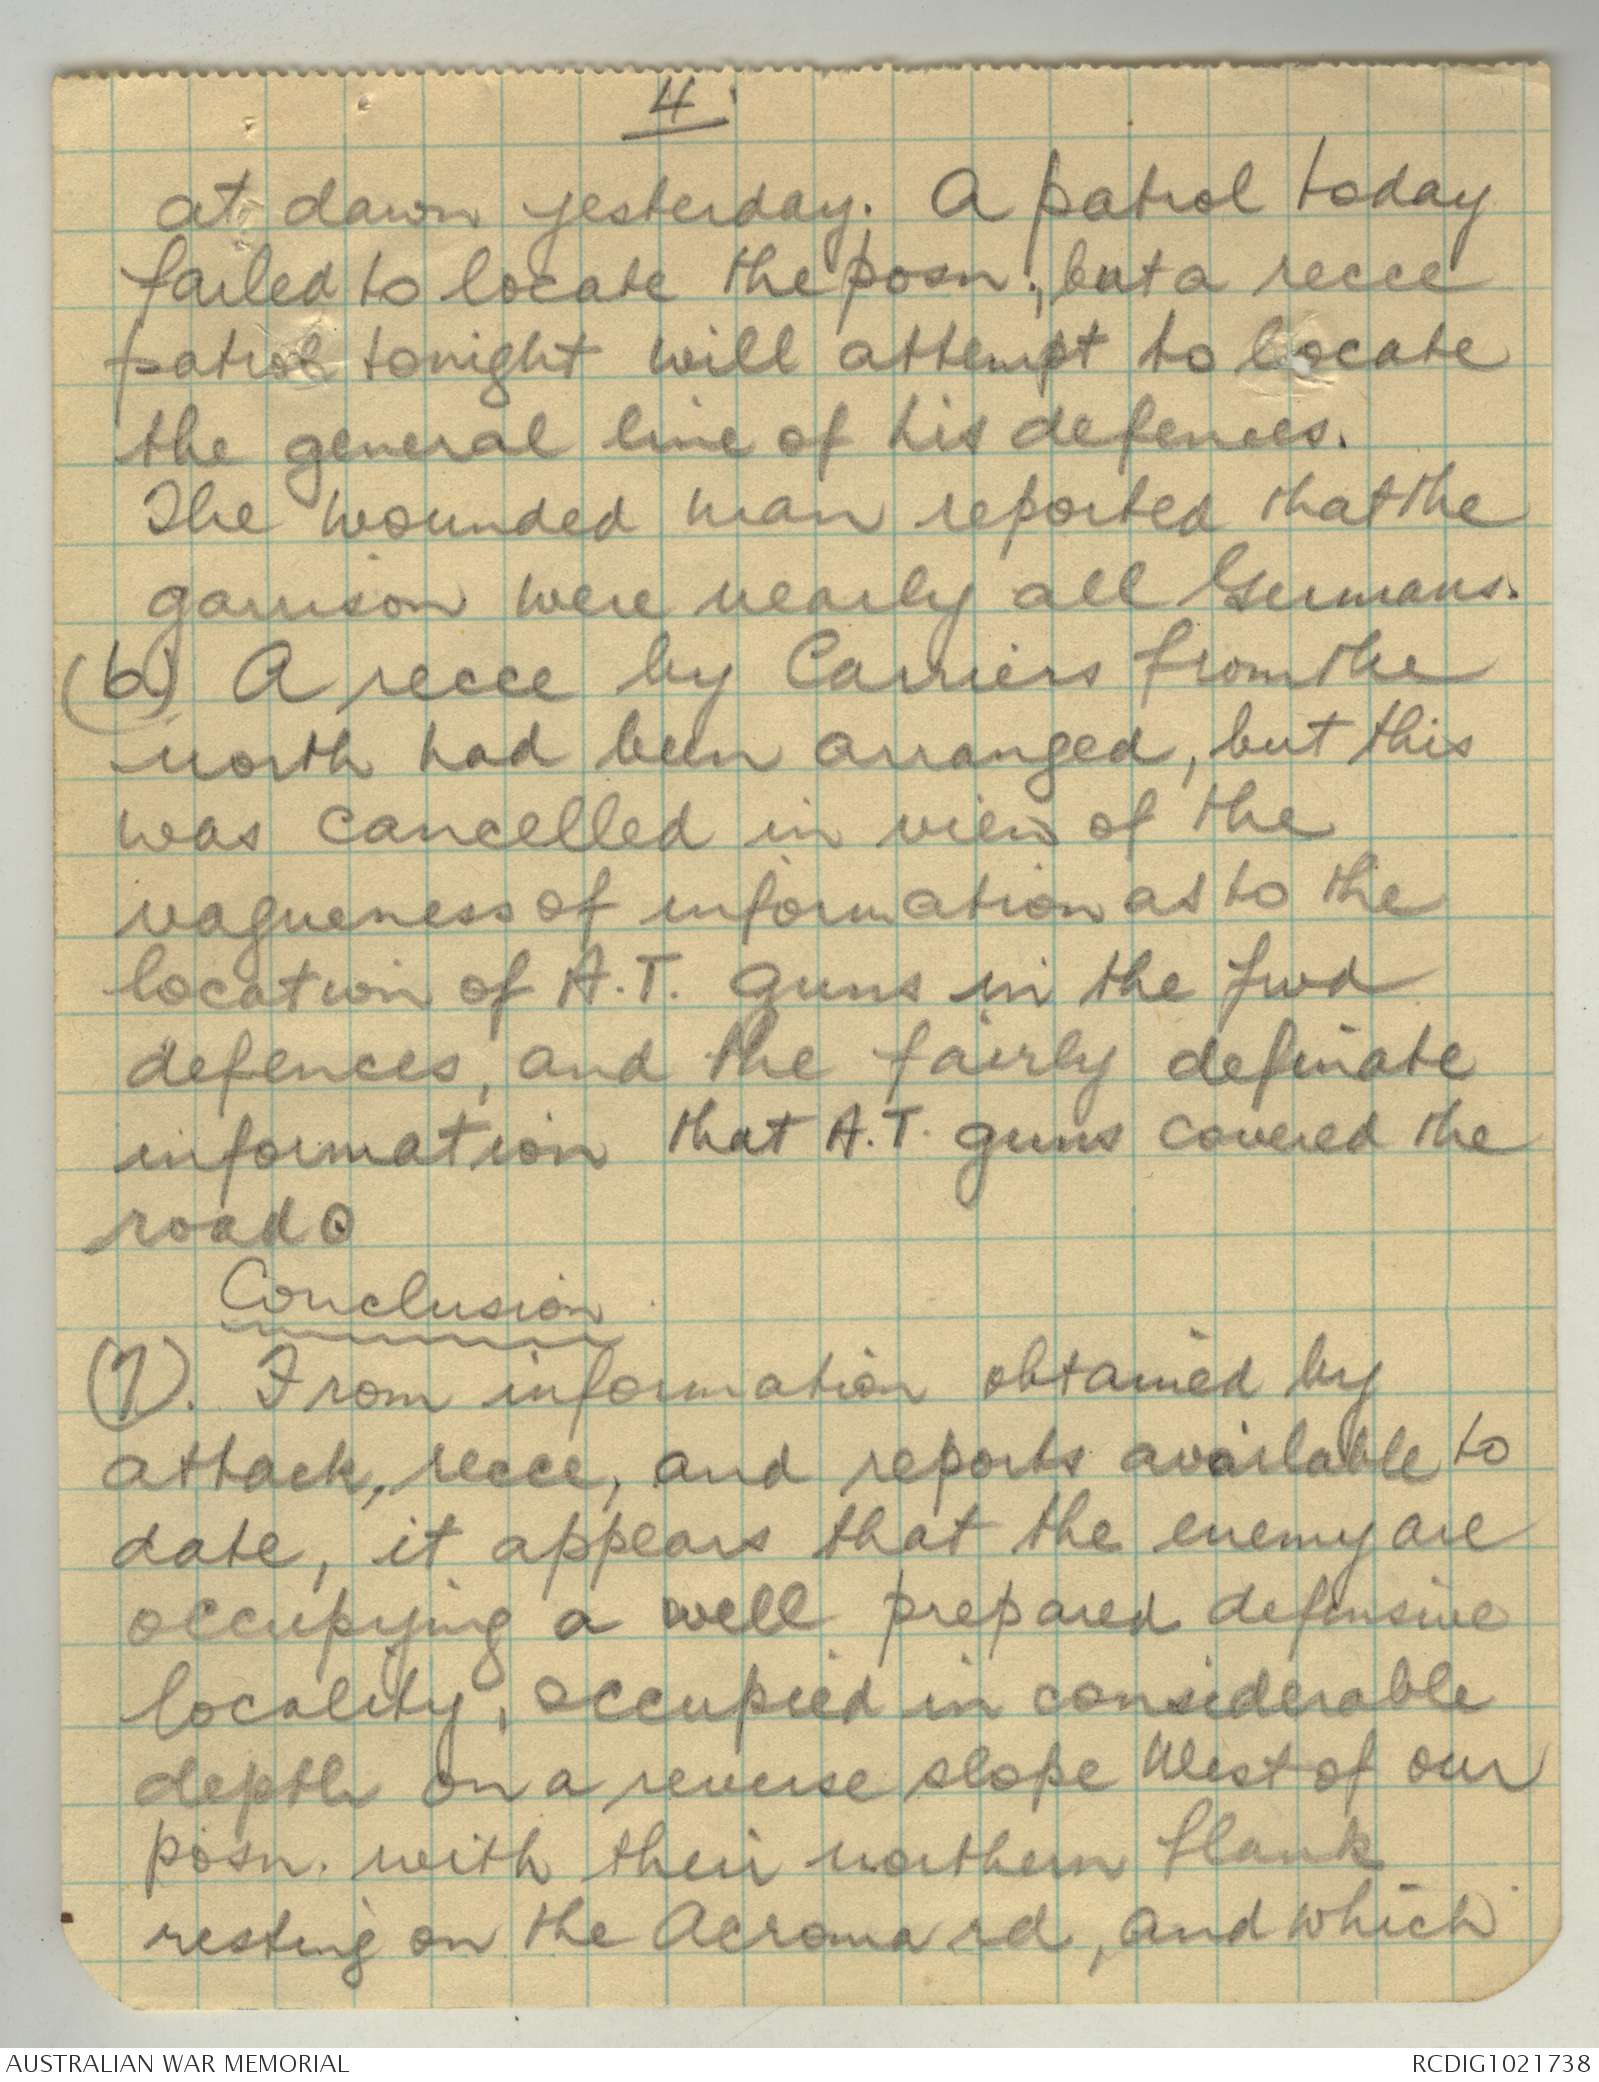 4.
at dawn yesterday. A patrol today
failed to locate the posn., but a recce
patrol tonight will attempt to locate
the general line of his defences.
The wounded man reported that the
garrison were nearly all Germans.
(6.) A recce by Carriers from the
north had been arranged, but this
was cancelled in view of the
vagueness of information as to the
location of A.T. guns in the fwd
defences, and the fairly definate
information that A.T. guns covered the
road.
Conclusion.
(7). From information obtained by
attack, recce, and reports available to
date, it appears that the enemy are
occupying a well prepared defensive
locality, occupied in considerable
depth on a reverse slope West of our
posn. with their northern flank
resting on the Acroma rd, and which
AUSTRALIAN WAR MEMORIAL
RCDIG1021738